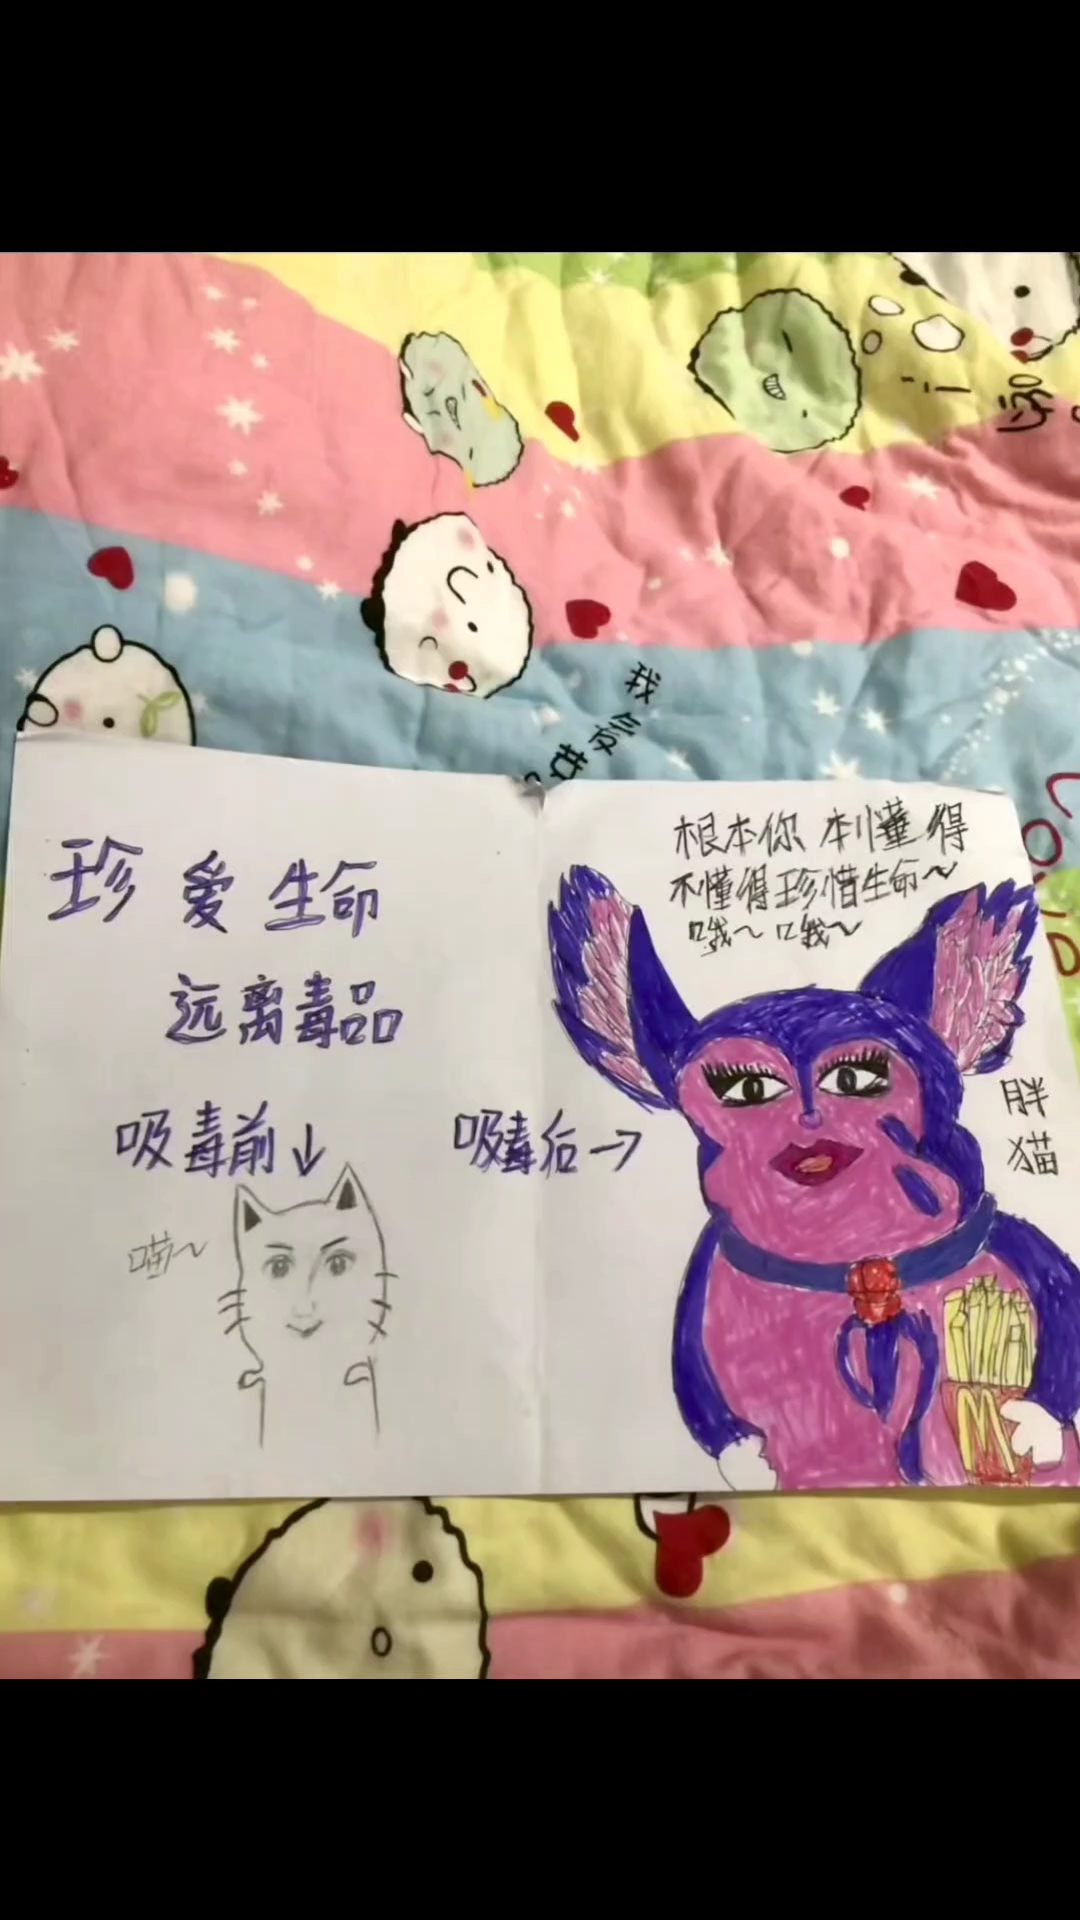 珍爱生命
远离毒品
吸毒前↓
喵~
吸毒后→
根本你本懂得
不懂得珍惜生命~
哦~哦~
胖
猫
M
我会敲